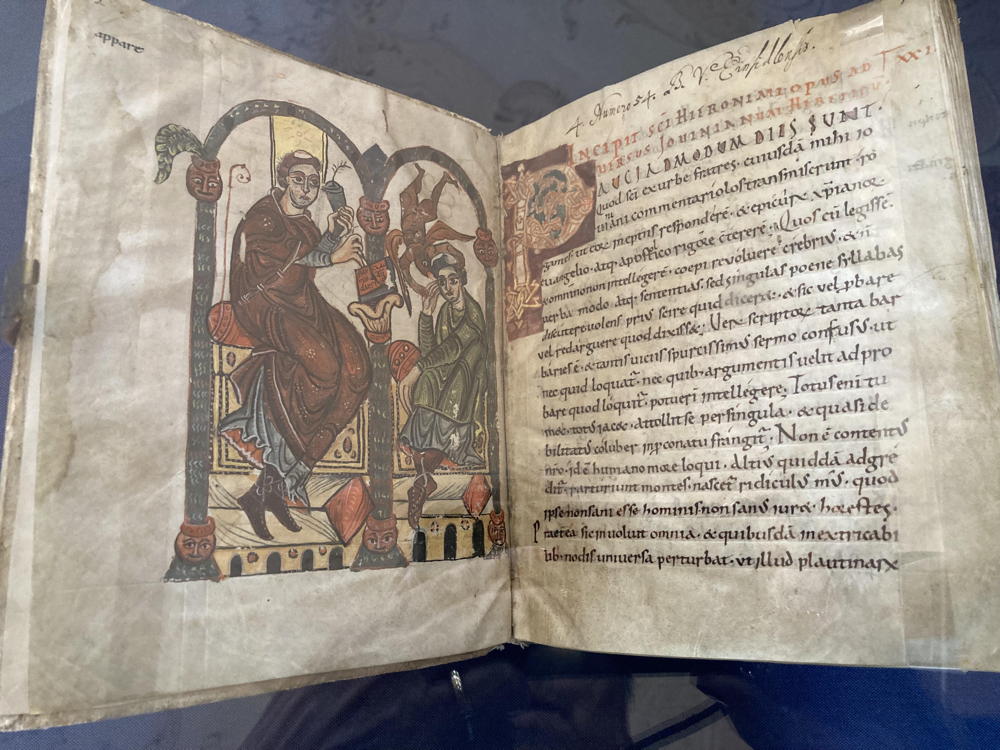 appare
INCIPIT SCI HIERONIMI OPUS AD
VERSUS IOUINIANUM HERETICU
PAUCI ADMODUM DIES SUNT.
quod sci ex urbe fratres. cuiusdā mihi io
uiniani commentariolos transmiserunt.
euangelio. atq; apostolico rigore cterere. Quos cū legissē.
& omnino non intellegerē. coepi reuoluere crebrius. & ñ
uerba modo atq; sententias. sed singulas poene syllabas
discutere. uolens prius scire quid dicer&. & sic uel pbare
uel redarguere quod dixiss&. Verū scriptorū tanta bar
baries ē. & tantis uiciis spurcissimus sermo confusus. ut
nec quid loquat. nec quib; argumentis uelit ad pro
bare quod loquit. potueri intellegere. Totus eni tu
m&. totus iac&. attollit se per singula. & quasi de
bilitatus coluber in ipso conatu frangit. Non ē contentus
nro. id ē humano more loqui. Altius quiddā adgre
dit. parturiunt montes. nascet ridiculus mus. quod
ipse non sani esse hominis. non sanus iur& horestes.
Praeterea sic inuoluit omnia. & quibusdā inextricabi
lib; nodis uniuersa perturbat. ut illud plautinarū